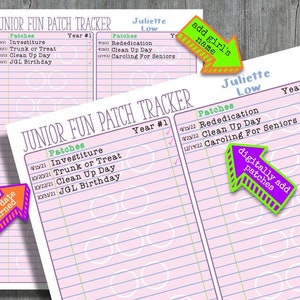 JUNIOR FUN PATCH TRACKER
Juliette
Low
Patches Year #1
Investiture
Trunk or Treat
Clean Up Day
JGL Birthday
Patches
Rededication
Clean Up Day
Caroling For Seniors
add girl's
name
JUNIOR FUN PATCH TRACKER
Juliette
Low
Patches Year #1
Investiture
Trunk or Treat
Clean Up Day
JGL Birthday
Patches
Rededication
Clean Up Day
Caroling For Seniors
digitally add
patches
date